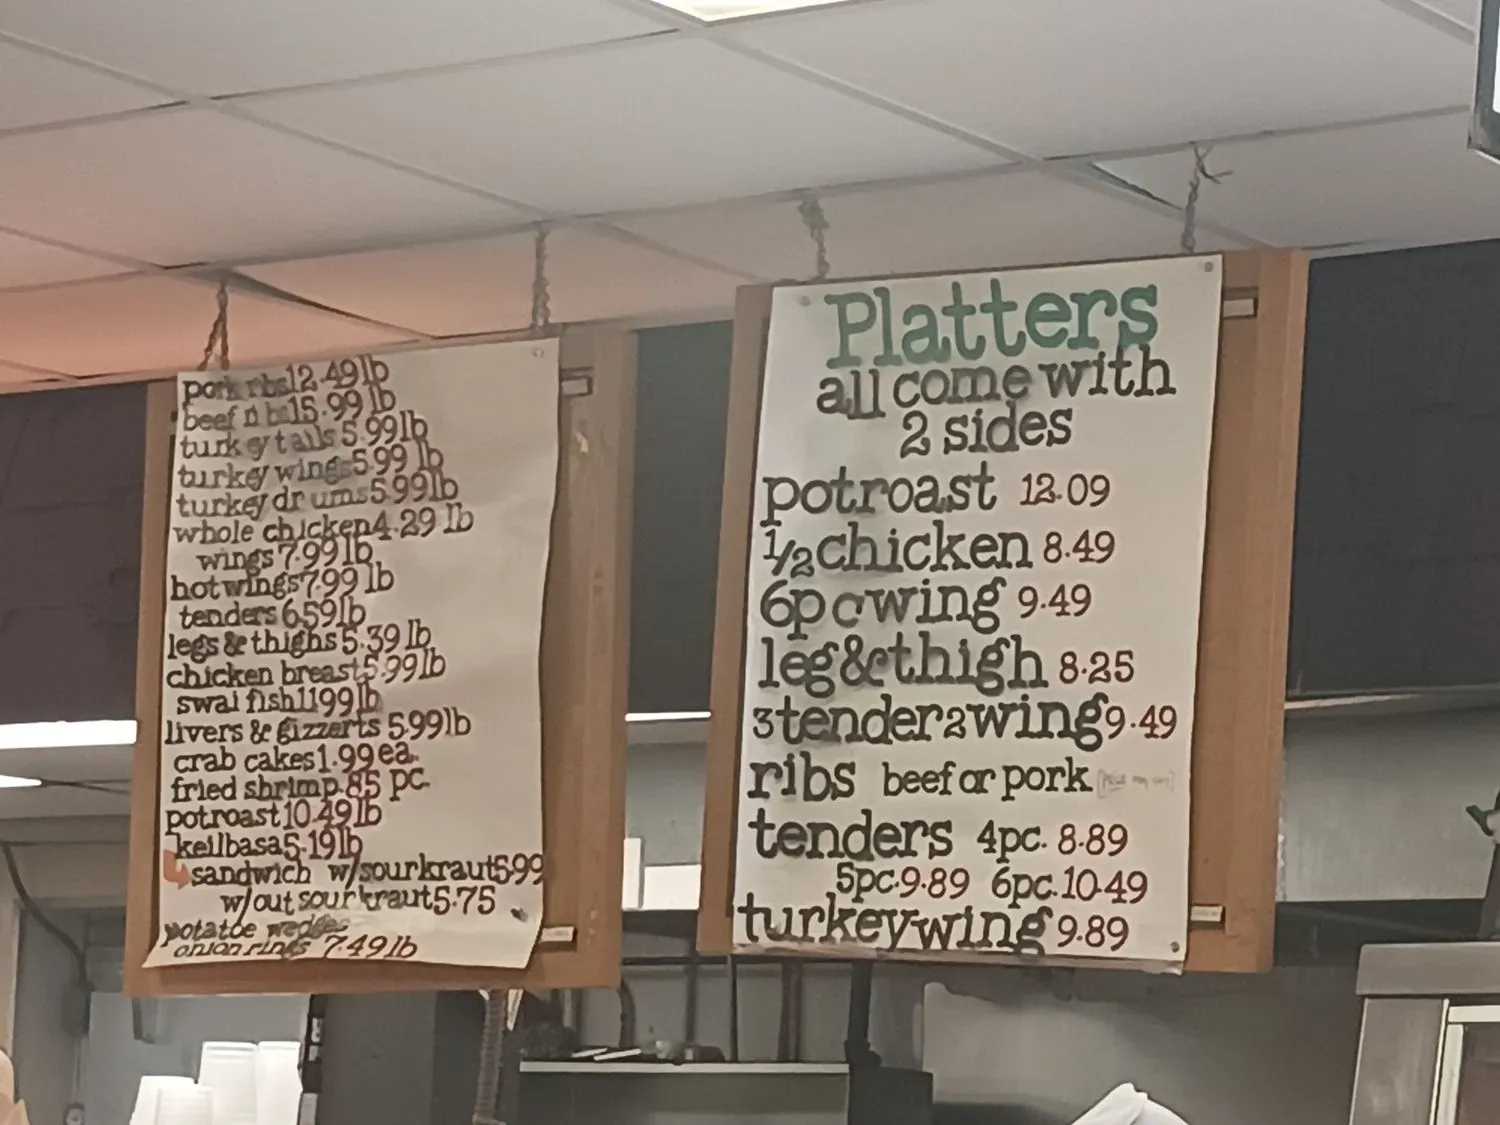 pork ribs 12.49 lb
beef ribs 15.99 lb
turkey tails 5.99 lb
turkey wings 5.99 lb
turkey drums 5.99 lb
whole chicken 4.29 lb
wings 7.99 lb
hot wings 7.99 lb
tenders 6.59 lb
legs & thighs 5.39 lb
chicken breast 5.99 lb
swai fish 11 99 lb
livers & gizzerts 5.99 lb
crab cakes 1.99 ea.
fried shrimp .85 pc.
potroast 10.49 lb
keilbasa 5.19 lb
sandwich w/sourkraut 5.99
w/out sourkraut 5.75
potatoe wedges
onion rings 7.49 lb
Platters
all come with
2 sides
potroast 12.09
1/2 chicken 8.49
6pc wing 9.49
leg & thigh 8.25
3 tender 2 wing 9.49
ribs beef or pork
tenders 4pc. 8.89
5pc. 9.89 6pc. 10.49
turkey wing 9.89